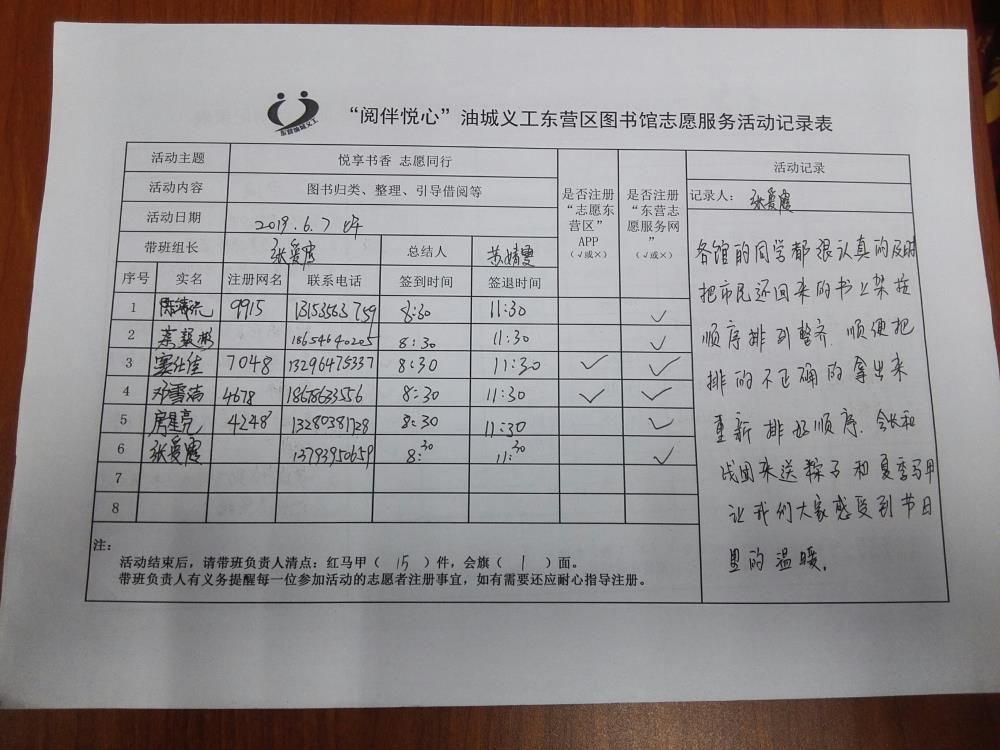 东营油城义工
“阅伴悦心”油城义工东营区图书馆志愿服务活动记录表
活动主题 悦享书香 志愿同行
活动内容 图书归类、整理、引导借阅等
活动日期 2019.6.7
带班组长 张爱霞 总结人 黄婧雯
序号 实名 注册网名 联系电话 签到时间 签退时间
是否注册
“志愿东
营区”
APP
(√或×)
是否注册
“东营志
愿服务网
”
(√或×)
1 9915 13153563759 8:30 11:30 √
2 18654640205 8:30 11:30 √
3 7048 13296475337 8:30 11:30 √ √
4 邓雪洁 4678 18678633556 8:30 11:30 √ √
5 房星亮 4248 13280381728 8:30 11:30 √
6 张爱霞 13793950659 8:30 11:30 √
7
8
注:
活动结束后，请带班负责人清点：红马甲（ 15 ）件，会旗（ 1 ）面。
带班负责人有义务提醒每一位参加活动的志愿者注册事宜，如有需要还应耐心指导注册。
活动记录
记录人： 张爱霞
各馆的同学都很认真的及时
把市民还回来的书上架按
顺序排列整齐.顺便把
排的不正确的拿出来
重新排好顺序.会长和
战园来送粽子和夏季马甲
让我们大家感受到节日
里的温暖.